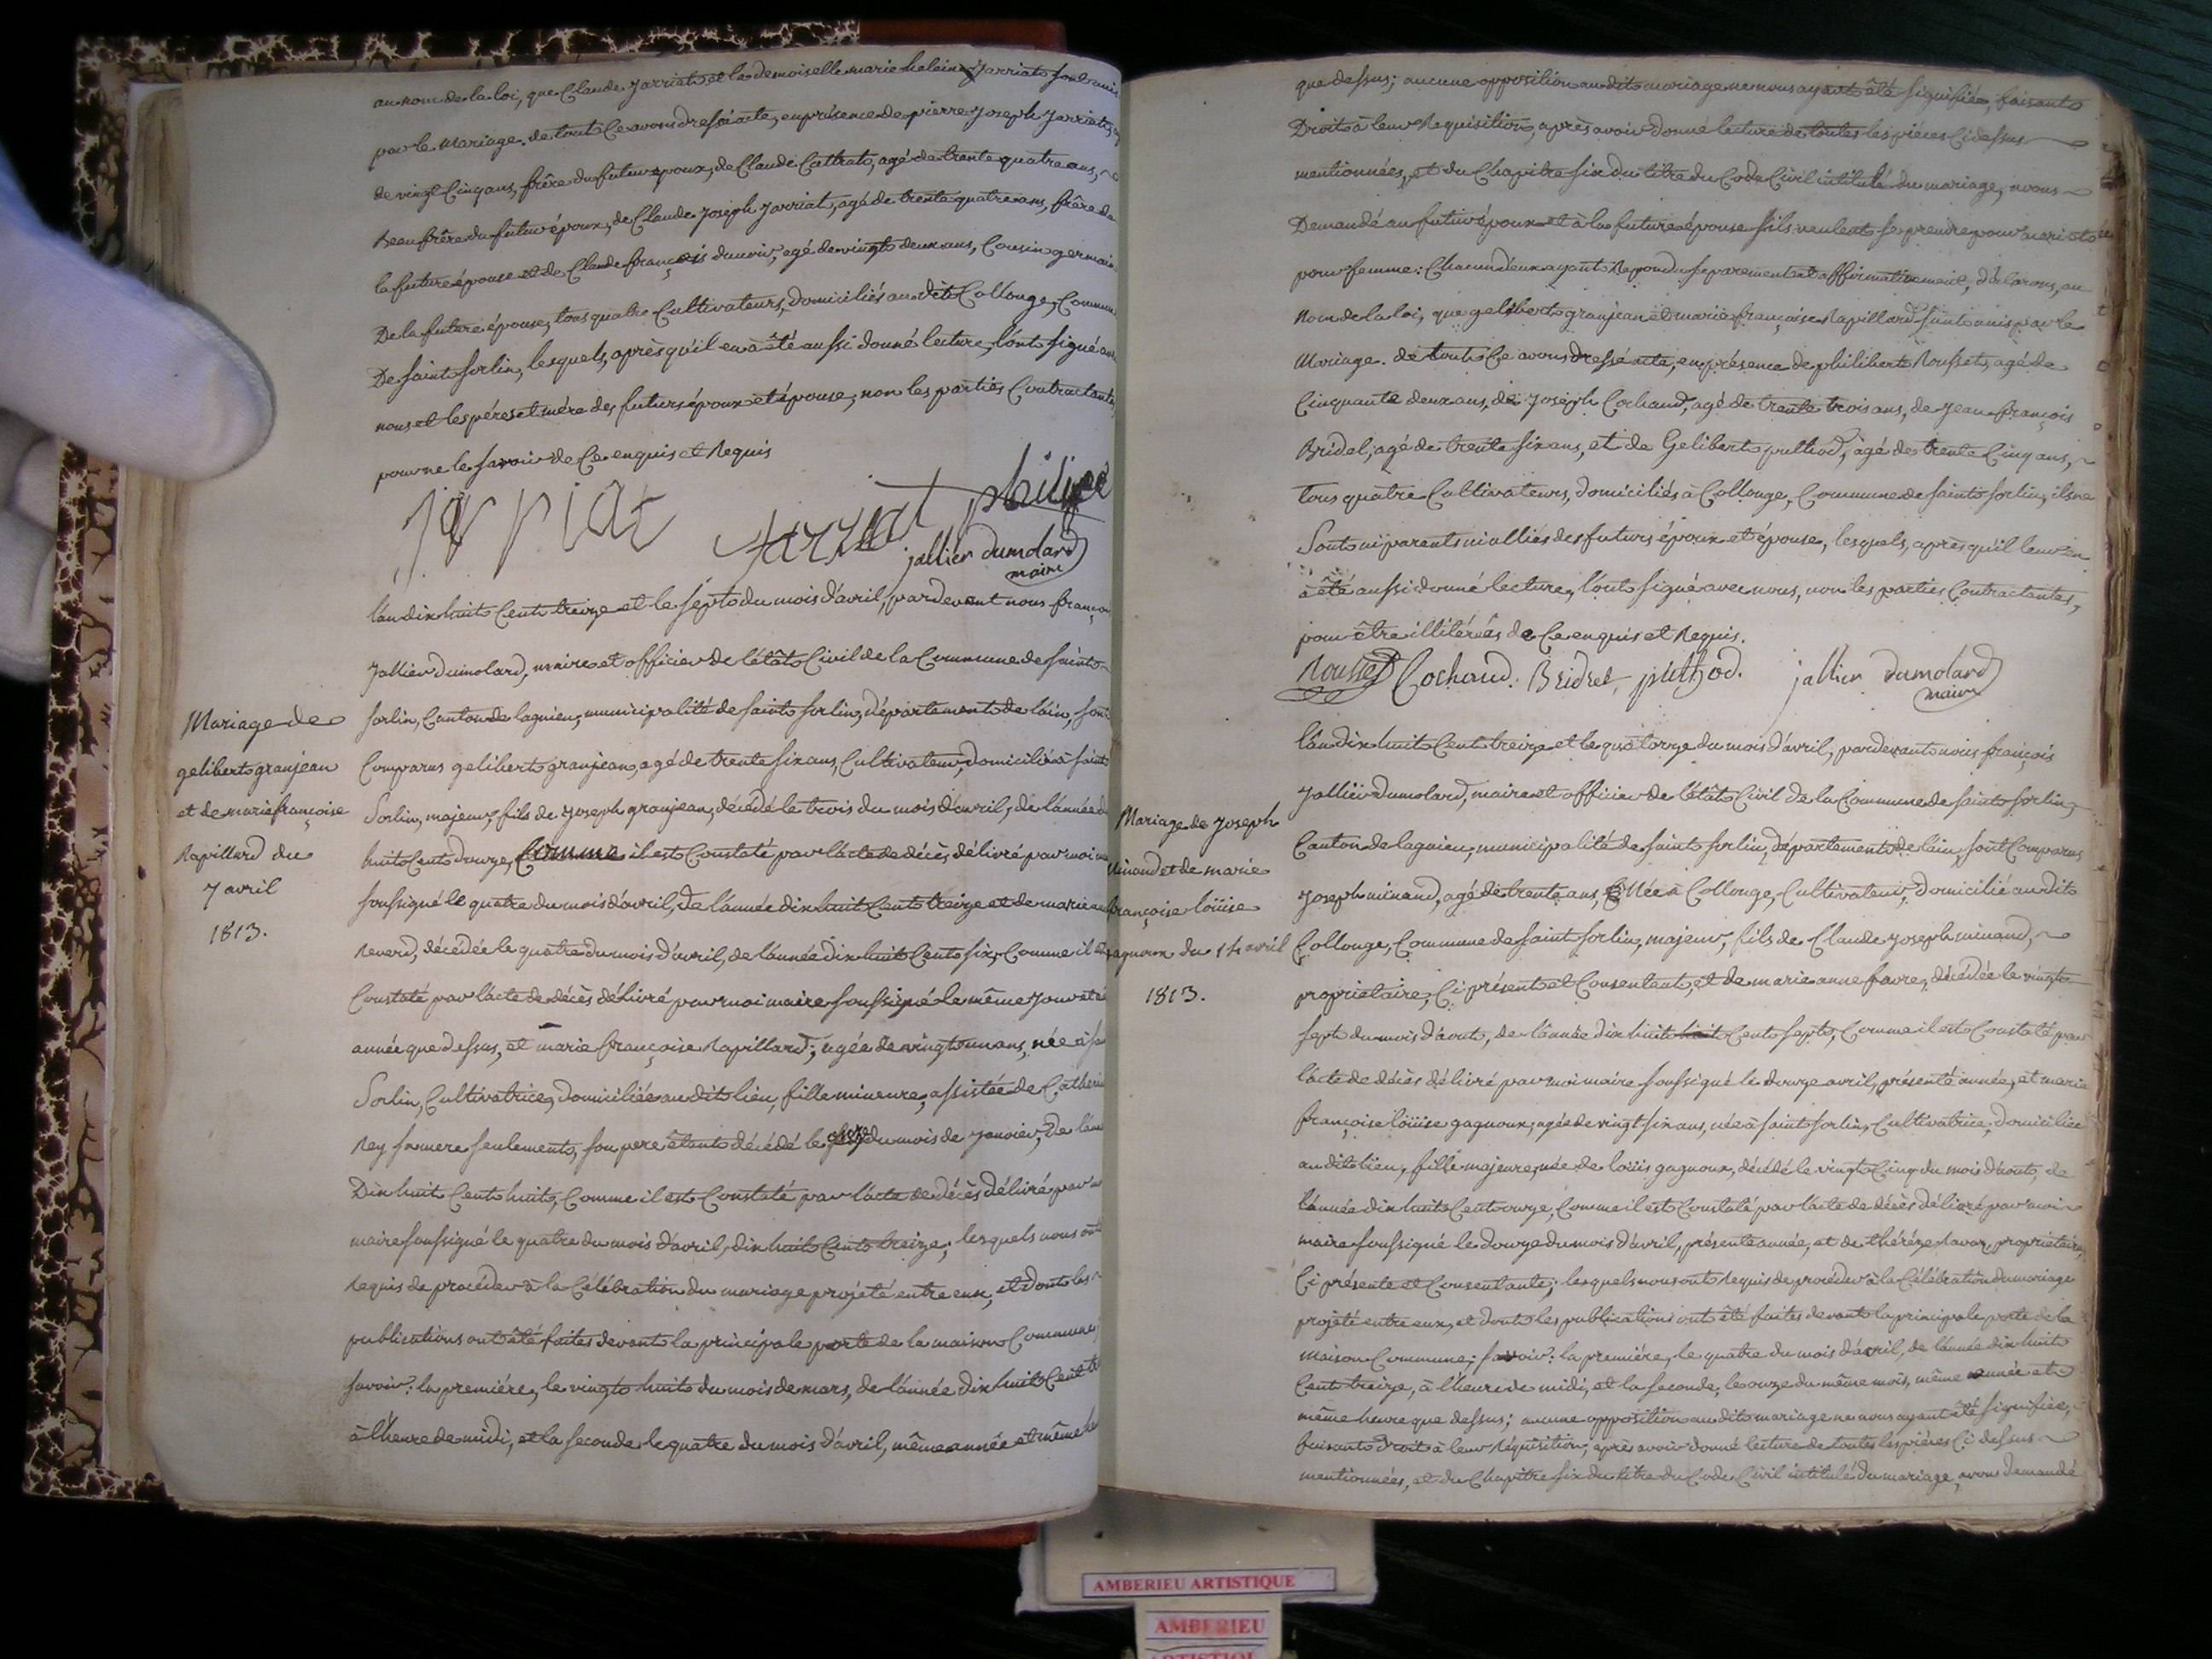 au nom de la loi, que Claude Jarriat et la demoiselle marie heleine Jarriat sont unis
par le mariage. de tout ce avons dressé acte, en présence de pierre Joseph Jarriat,
de vingt Cinq ans, frère du futur époux, de Claude Cattrat, agé de trente quatre ans,
Beau frère du futur époux, de Claude Joseph Jarriat, agé de trente quatre ans, frère de
la future épouse et de Claude françois, agé de vingt deux ans, Cousin germain
De la future épouse, tous quatre Cultivateurs, domiciliés au dit Collonge, Commune
De saint sorlin, lesquels, après qu'il en à été aussi donné lecture, l'ont signé avec
nous et les péres et mére des futurs époux et épouse, non les parties Contractantes
pour ne le savoir de Ce enquis et Requis
Jarriat Jarriat philippe
jallier dumolard
maire
l'an dix huit Cent treize et le sept du mois d'avril, pardevant nous françois
Jallier dumolard, maire et officier de l'état Civil de la Commune de saint
Sorlin, Canton de lagnieu, municipalité de saint sorlin, département de l'ain, sont
Mariage de
geliberto granjean
et de marie françoise
Rapillard du
7 avril
1813.
Comparus geliberto granjean, agé de trente six ans, Cultivateur, domicilié à saint
Sorlin, majeur, fils de Joseph granjean, décédé le trois du mois d'avril, de l'année
huit Cent douze, Comme il est Constaté par l'acte de décès, délivré par moi
soussigné le quatre du mois d'avril, De l'année dix huit Cent treize et de marie
Reverd, décédée le quatre du mois d'avril, de l'année dix huit Cent six, Comme il est
Constaté par l'acte de décès délivré par moi maire soussigné le même Jour et
année que dessus, et marie françoise Rapillard, agée de vingt un ans, née à
Sorlin, Cultivatrice, domiciliée au dit lieu, fille mineure, assistée de Catherine
Rey sa mere seulement, son pere étant décédé le du mois de Janvier, De l'année
Dix huit Cent huit, Comme il est Constaté par l'acte de décès délivré par
maire soussigné le quatre du mois d'avril, dix huit Cent treize, lesquels nous ont
Requis de procéder à la Célébration du mariage projété entre eux, et dont les
publications ont été faites devant la principale porte de la maison Commune
savoir: la premiére, le vingt huit du mois de mars, de l'année dix huit Cent
à l'heure de midi, et la seconde le quatre du mois d'avril, même année et même
que dessus; aucune opposition au dit mariage ne nous ayant été signifiée, faisant
Droit à leur Requisition, après avoir donné lecture de toutes les piéces Ci dessus
mentionnées, et du Chapitre six du titre du Code Civil intitulé du mariage, avons
Demandé au futur époux et à la future épouse s'ils veulent se prendre pour mari et
pour femme: Chacun d'eux ayant Repondu séparement et affirmativement, déclarons, au
Nom de la loi, que geliberto granjean et marie françoise Rapillard sont unis par le
Mariage. de tout Ce avons dressé acte, en présence de philibert Rousset, agé de
Cinquante deux ans, de Joseph Cochaud, agé de trente trois ans, de Jean françois
Bridel, agé de trente six ans, et de Geliberto puthod, agé de trente Cinq ans,
Tous quatre Cultivateurs, domiciliés à Collonge, Commune de saint sorlin, ils ne
Sont ni parents ni alliés des futurs époux et épouse, lesquels, après qu'il leur en
à été aussi donné lecture, l'ont signé avec nous, non les parties Contractantes,
pour être illitérées de Ce enquis et Requis.
Rousset Cochaud. Bridel, puthod. jallier dumolard
maire
l'an dix huit Cent treize et le quatorze du mois d'avril, pardevant nous françois
Jallier Dumolard, maire et officier de l'état Civil de la Commune de saint sorlin,
Canton de lagnieu, municipalité de saint sorlin, département de l'ain, sont Comparus
Mariage de Joseph
minand et de marie
françoise loüise
gagnoux du 14 avril
1813.
Joseph minand, agé de trente ans, Née à Collonge, Cultivateur, domicilié au dit
Collonge, Commune de saint sorlin, majeur, fils de Claude Joseph minand,
proprietaire, Ci présent et Consentent, et de marie anne favre, décédée le vingt
sept du mois d'aout, de l'année dix huit Cent sept, Comme il est Constaté par
l'acte de décès délivré par moi maire soussigné le douze avril, présente année, et marie
françoise loüise gagnoux, agée de vingt six ans, née à saint sorlin, Cultivatrice, domiciliée
au dit lieu, fille majeure, née de loüis gagnoux, décédé le vingt Cinq du mois d'aout, de
l'année dix huit Cent onze, Comme il est Constaté par l'acte de décès délivré par moi
maire soussigné le douze du mois d'avril, présente année, et de théréze Ravar, proprietaire,
Ci présente et Consentante; lesquels nous ont Requis de procéder à la Célébration du mariage
projété entre eux, et dont les publications ont été faites devant la principale porte de la
maison Commune; savoir: la premiére, le quatre du mois d'avril, de l'année dix huit
Cent treize, à l'heure de midi, et la seconde, le onze du même mois, même année et
même heure que dessus; aucune opposition au dit mariage ne nous ayant été signifiée,
faisant Droit à leur Réquisition, après avoir donné lecture de toutes les piéces Ci dessus
mentionnées, et du Chapitre six du titre du Code Civil intitulé du mariage, avons Demandé
AMBERIEU ARTISTIQUE
AMBERIEU
ARTISTIQUE